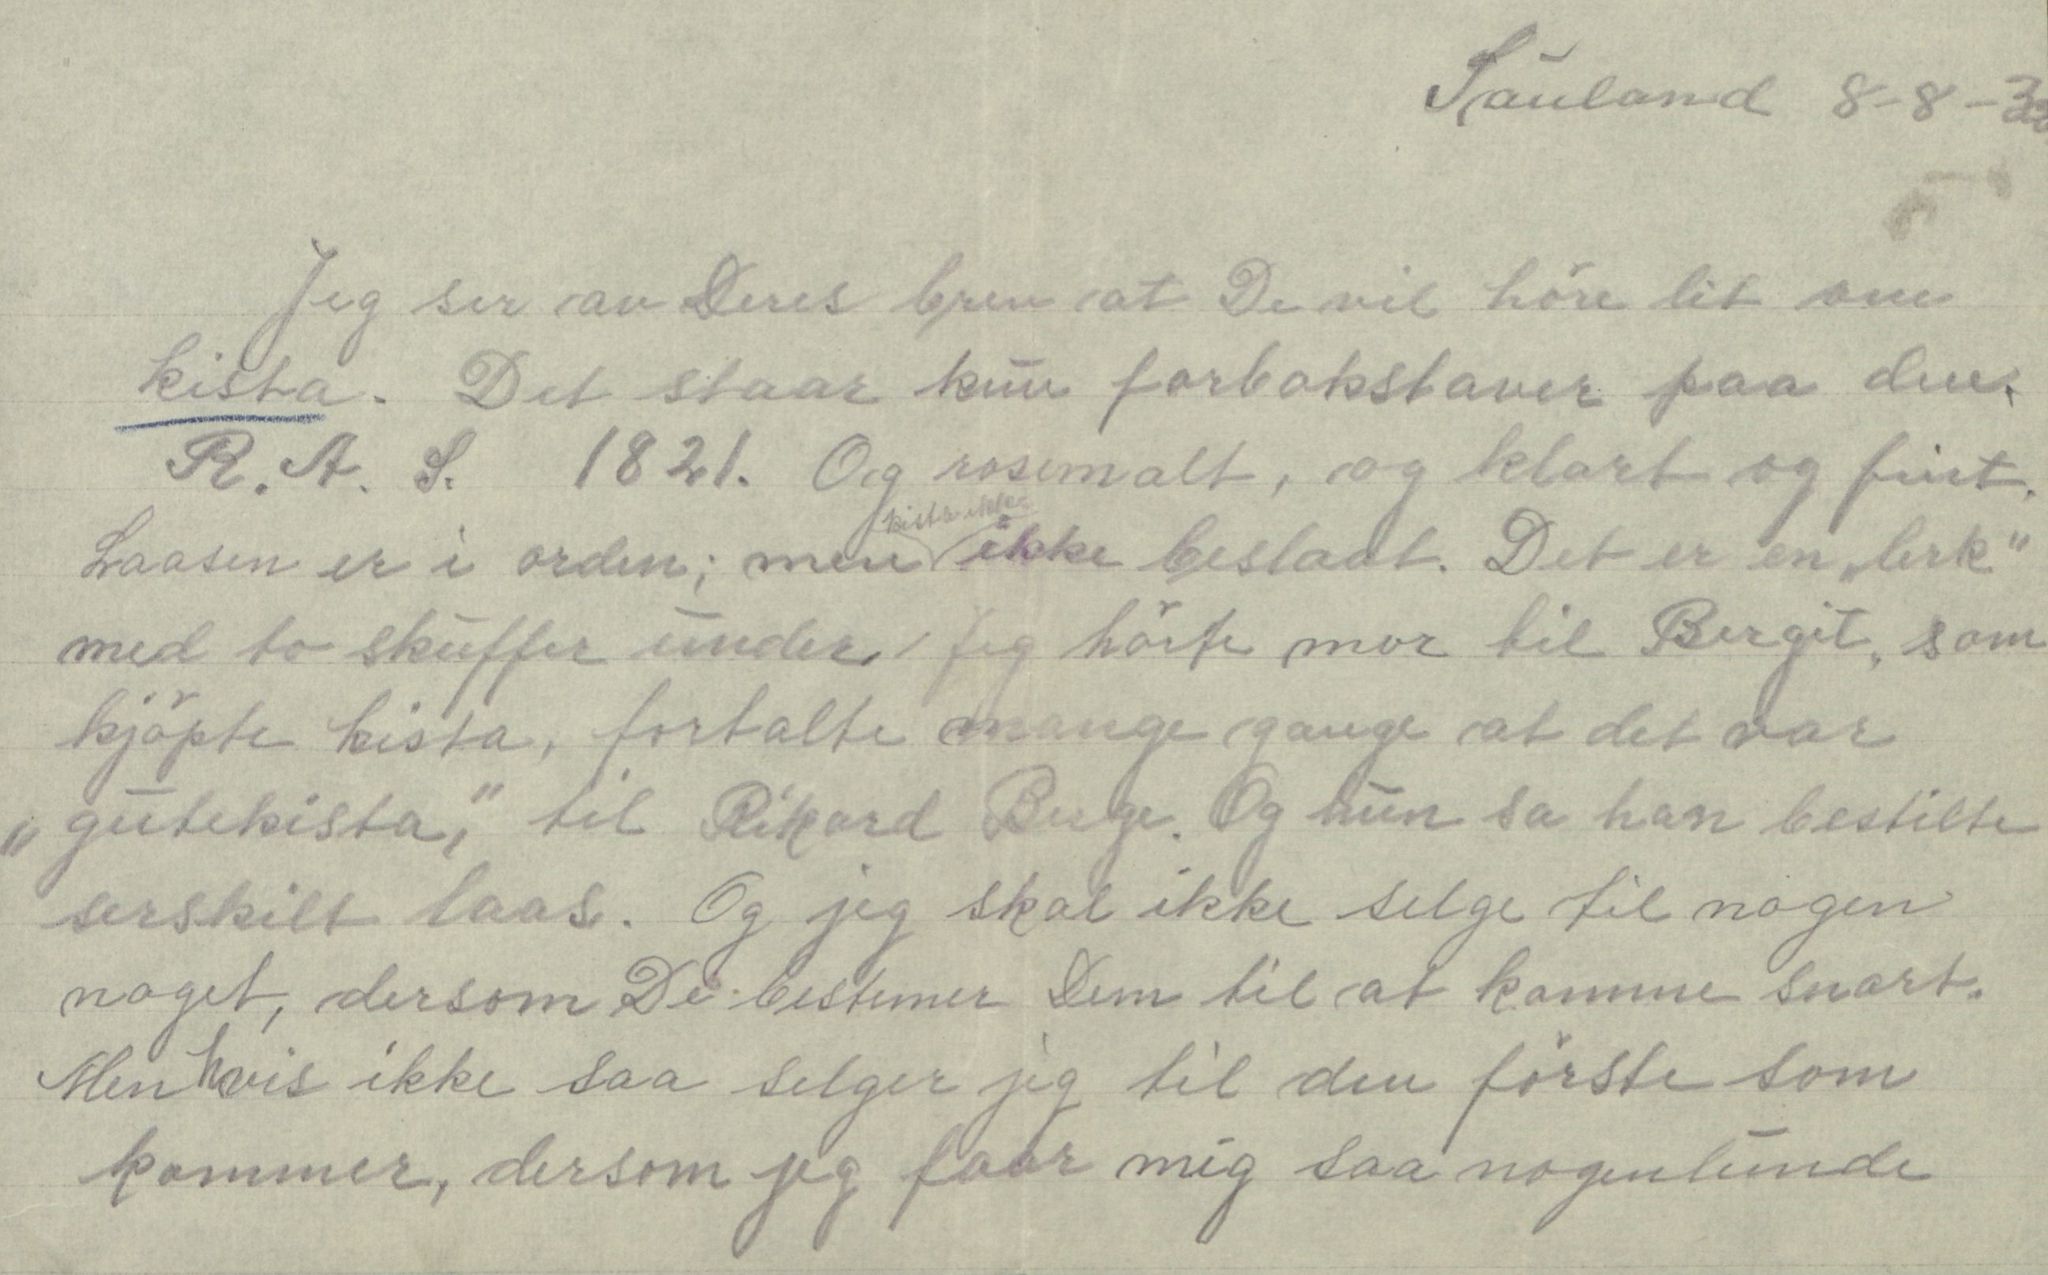 Sauland 8-8-33
Jeg ser av Deres brev at De vil höre lit om
kista. Det staar kun forbokstaver paa den.
R. A. S. 1821. Og rosemalt, og klart og fint.
kista ikke
Laasen er i orden; men ikke beslaat. Det er en „lerk"
med to skuffer under. Jeg hörte mor til Bergit, som
kjöpte kista, fortalte mange gange at det var
„gutekista," til Rikard Berge. Og hun sa han bestilte
serskilt laas. Og jeg skal ikke selge til nogen
noget, dersom De bestemer Dem til at komme snart.
Men hvis ikke saa selger jeg til den förste som
kommer, dersom jeg faar mig saa nogenlunde